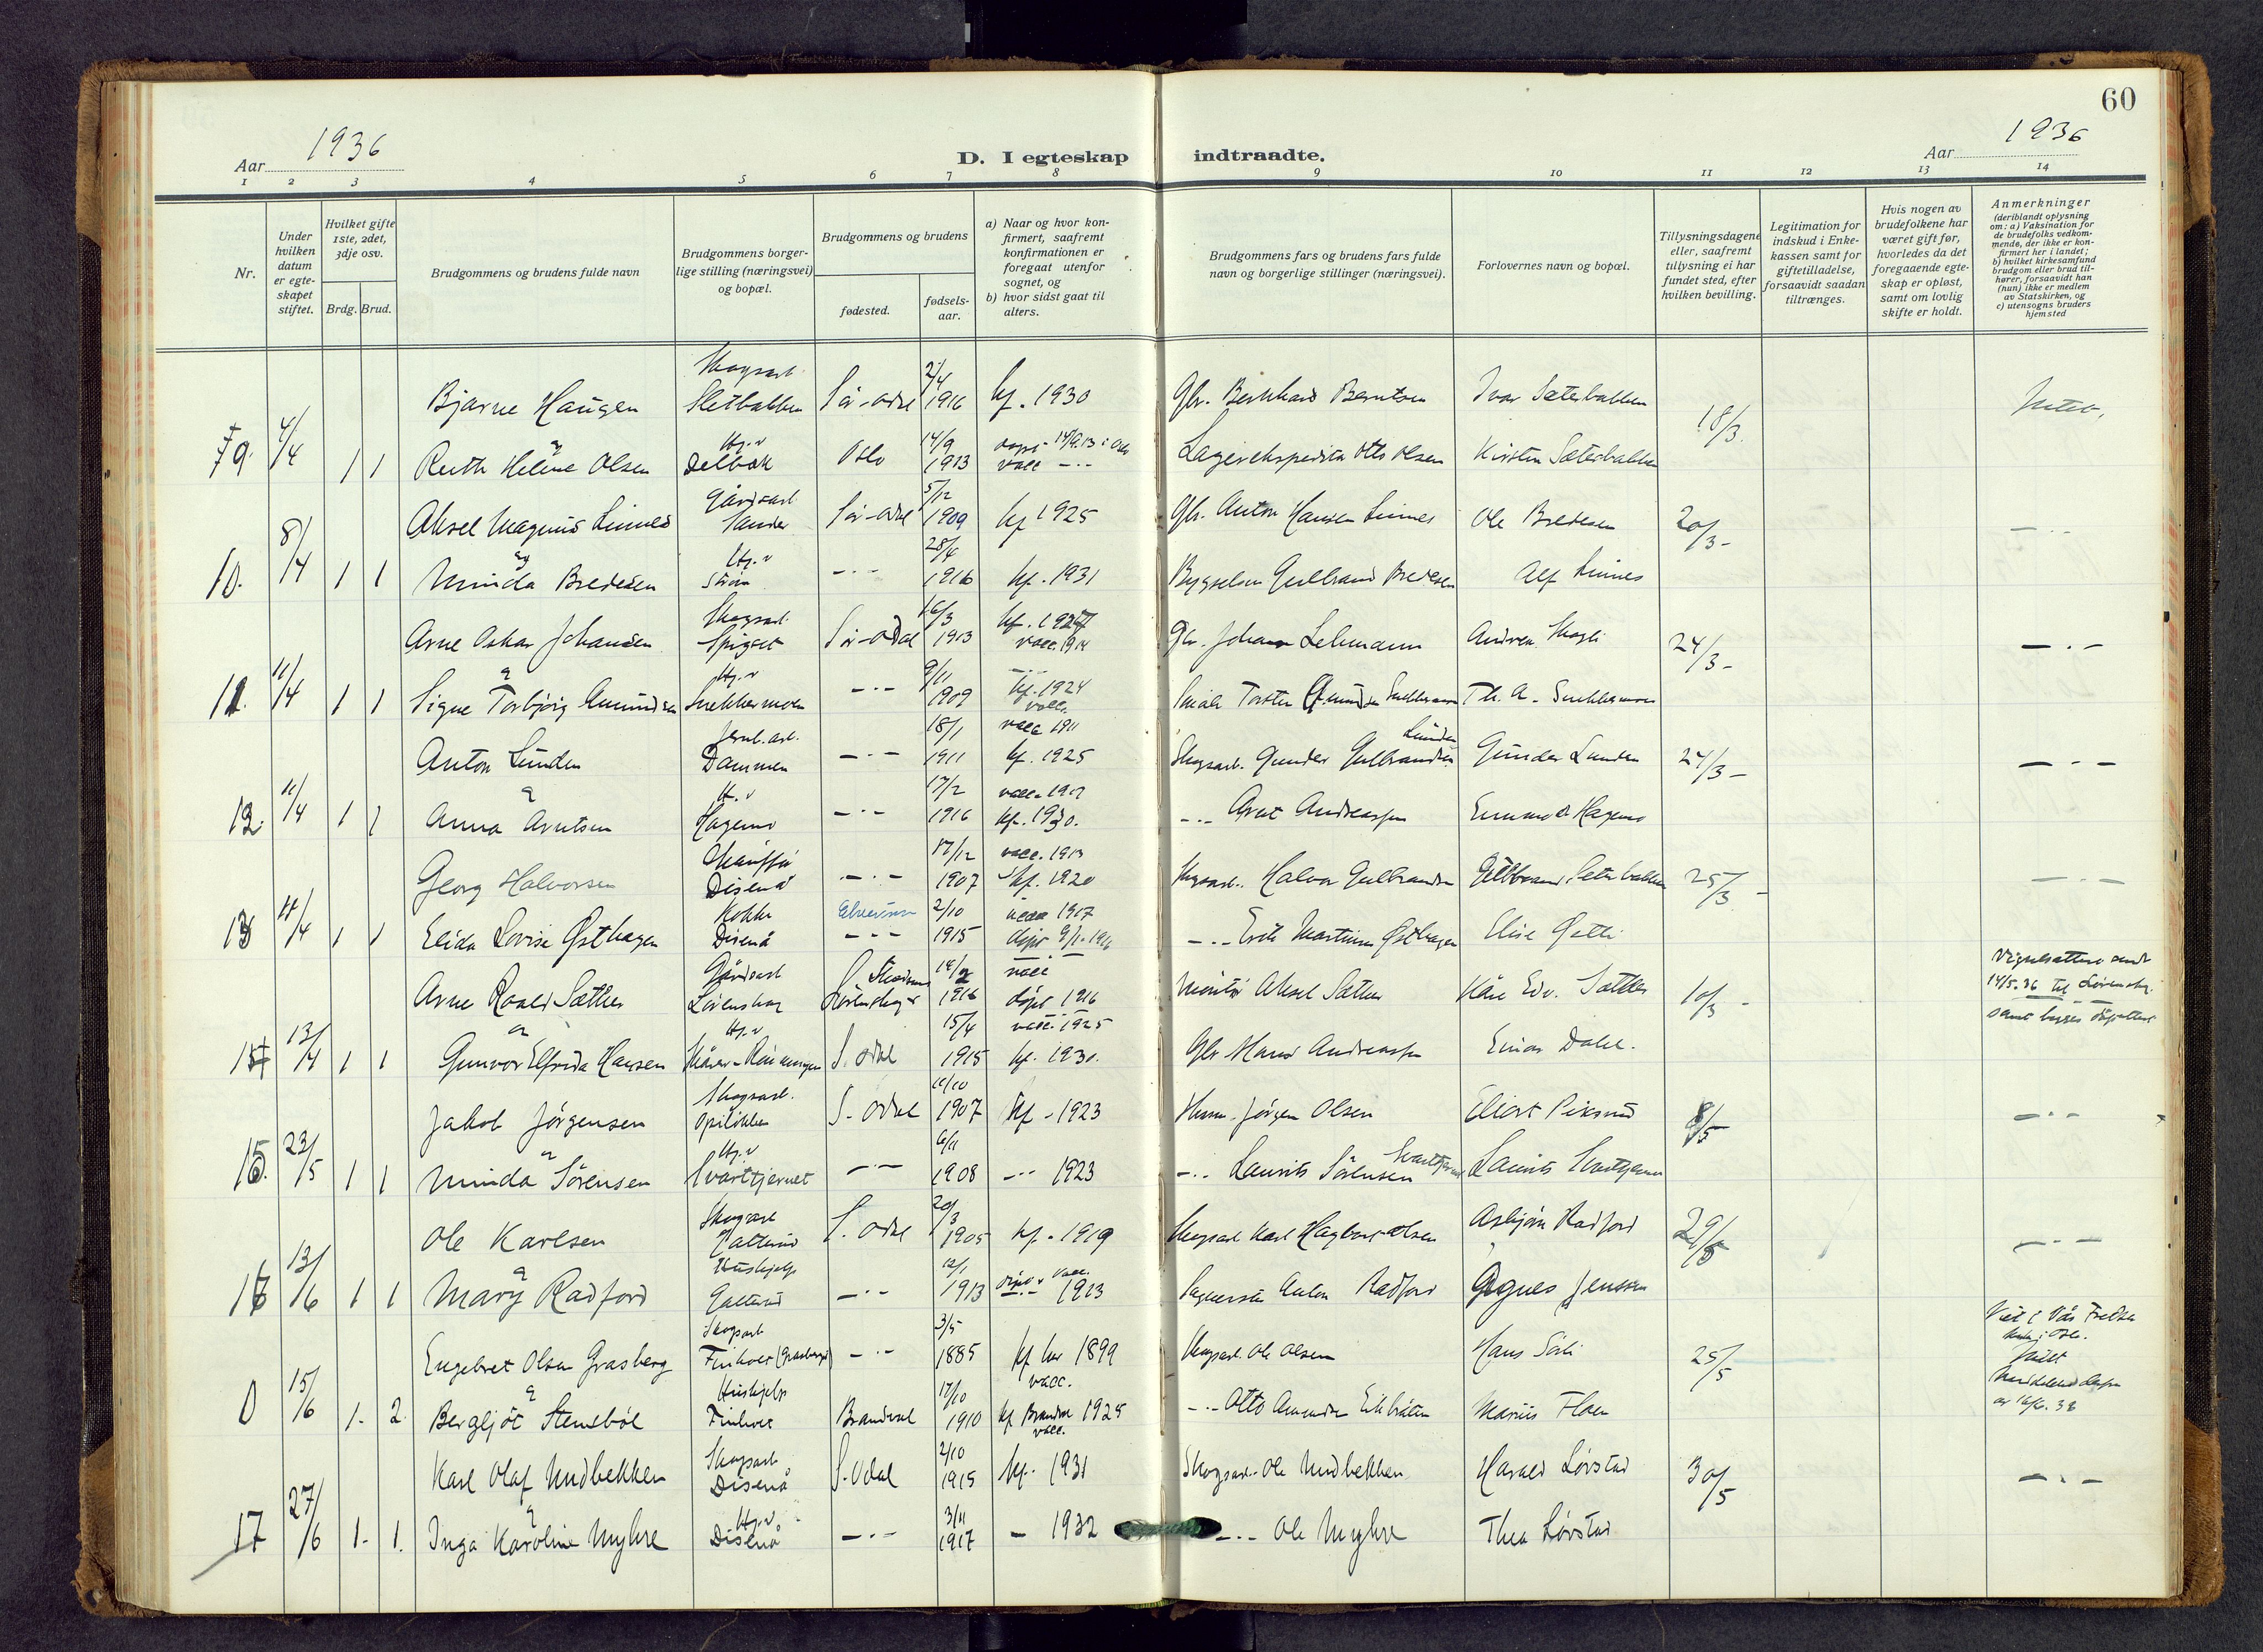 60
Aar 1936
D. I egteskap indtraadte.
Aar 1936
1 2 3 4 5 6 7 8 9 10 11 12 13 14
Nr.
Under hvilken datum er egte-skapet stiftet.
Hvilket gifte 1ste, 2det, 3dje osv.
Brdg. Brud.
Brudgommens og brudens fulde navn
Brudgommens borger-lige stilling (næringsvei) og bopæl.
Brudgommens og brudens
fødested.
fødsels-aar.
a) Naar og hvor kon-firmert, saafremt konfirmationen er foregaat utenfor sognet, og
b) hvor sidst gaat til alters.
Brudgommens fars og brudens fars fulde navn og borgerlige stillinger (næringsvei).
Forlovernes navn og bopæl.
Tillysningsdagene eller, saafremt tillysning ei har fundet sted, efter hvilken bevilling.
Legitimation for indskud i Enke-kassen samt for giftetilladelse, forsaavidt saadan tiltrænges.
Hvis nogen av brudefolkene har været gift før, hvorledes da det foregaaende egte-skap er opløst, samt om lovlig skifte er holdt.
Anmerkninger
(deriblandt oplysning om: a) Vaksination for de brudefolks vedkom-mende, der ikke er kon-firmert her i landet; b) hvilket kirkesamfund brudgom eller brud til-hører, forsaavidt han (hun) ikke er medlem av Statskirken, og c) utensogns bruders hjemsted
Skogsarb. 2/4
Bjarne Haugen Sletbakken Sør-Odal 1916 kf. 1930 Gbr. Bernhard Berntsen Ivar Sæterbakken 18/3
9. 4/4 1 1 Hj.v 14/9
Ruth Helene Olsen Delbæk Oslo 1913 vacc Lagerekspeditør Otto Olsen Kirsten Sæterbakken
Gårdsarb 5/12
Aksel Magnus Linnes Sander Sør-Odal 1909 kf 1925 Gbr. Anton Hansen Linnes Ole Bredesen 20/3 -
10. 8/4 1 1 Hj.v 28/4
Minda Bredesen Strøm - " - 1916 kf. 1931 Bygselm Gulbrand Bredesen Alf Linnes
Skogsarb. 16/3
Arne Oskar Johansen Spigset Sør-Odal 1913 kf. 1927 vacc. 1914 Gbr. Johan Lehmann Andreas Skogli 24/3 - - " -
11. 11/4 1 1 Hj.v 9/11
Signe Torbjørg Amundsen Snekkermoen - " - 1909 kf. 1924 vacc. Th. A. Snekkermoen
Jernb.arb. 18/1 vacc 1911 Lunden
Anton Lunden Dammen - " - 1911 kf. 1925 Skogsarb. Gunder Gulbrandsen Gunder Lunden 24/3 - - " -
12. 11/4 1 1 H.v 17/2 vacc. 1917
Anna Arntsen Hagemo - " - 1916 kf. 1930. - " - Arnt Andreassen
17/12 vacc. 1913
Georg Halvorsen Disenå - " - 1907 kf. 1920 Skogsarb. Halvor Gulbrandsen Gulbrand Sæterbakken 25/3 - - " -
13 11/4 1 1 Kokke Elverum 2/10 1917
Elida Lovise Østhagen Disenå - " - 1915 døpt 9/1-1916 - " - Erik Martinsen Østhagen
Gårdsarb
Arne Roald Sæther Lørenskog 1916 døpt 1916 Montør Aksel Sæther Kåre Edv. Sæther 10/3 -
14 13/4 1 1 Hj.v 15/4 vacc. 1925
Gunvor Elfrida Hansen S. Odal 1915 kf. 1930. Gbr Hans Andreassen Einar Dahl.
Skogsarb. 10/10
Jakob Jørgensen Opiløkken S. Odal 1907 kf - 1923 Jørgen Olsen 8/5 - " -
15. 23/5 1 1 Hj.v 6/11 Svarttjernet
Minda Sørensen Svarttjernet - " - 1908 - " - 1923 - " - Laurits Sørensen Laurits Svarttjernet
Skogsarb 20/3
Ole Karlsen Galterud S. Odal 1905 kf. 1919 Skogsarb Karl Hagbart Olsen Asbjørn Radford 29/5 - " -
16 13/6 1 1 Hushjelp 12/1 døpt & vacc.
Mary Radford Galterud - " - 1913 1913 Anton Radford Agnes Jenssen
Skogsarb 3/5
Engebret Olsen Grasberg Finholt (Grasberget) - " - 1885 kf her 1899 vacc. Skogsarb. Ole Olsen Hans Sörli 25/5
0 15/6 1. 2. Hushjelp 17/10
Bergljot Stensböl Finholt Brandval 1910 kf Brandval 1925 vacc. - " - Otto Amundsen Marius Floen
Skogsarb. 2/10
Karl Olaf Midbekken Disenå S. Odal 1915 kf. 1931 Skogsarb. Ole Midbekken Harald Løvstad 30/5 - " -
17 27/6 1. 1. Hj.v 3/11
Inga Karoline Myhre Disenå - " - 1917 - 1932 - " - Ole Myhre Thea Løvstad